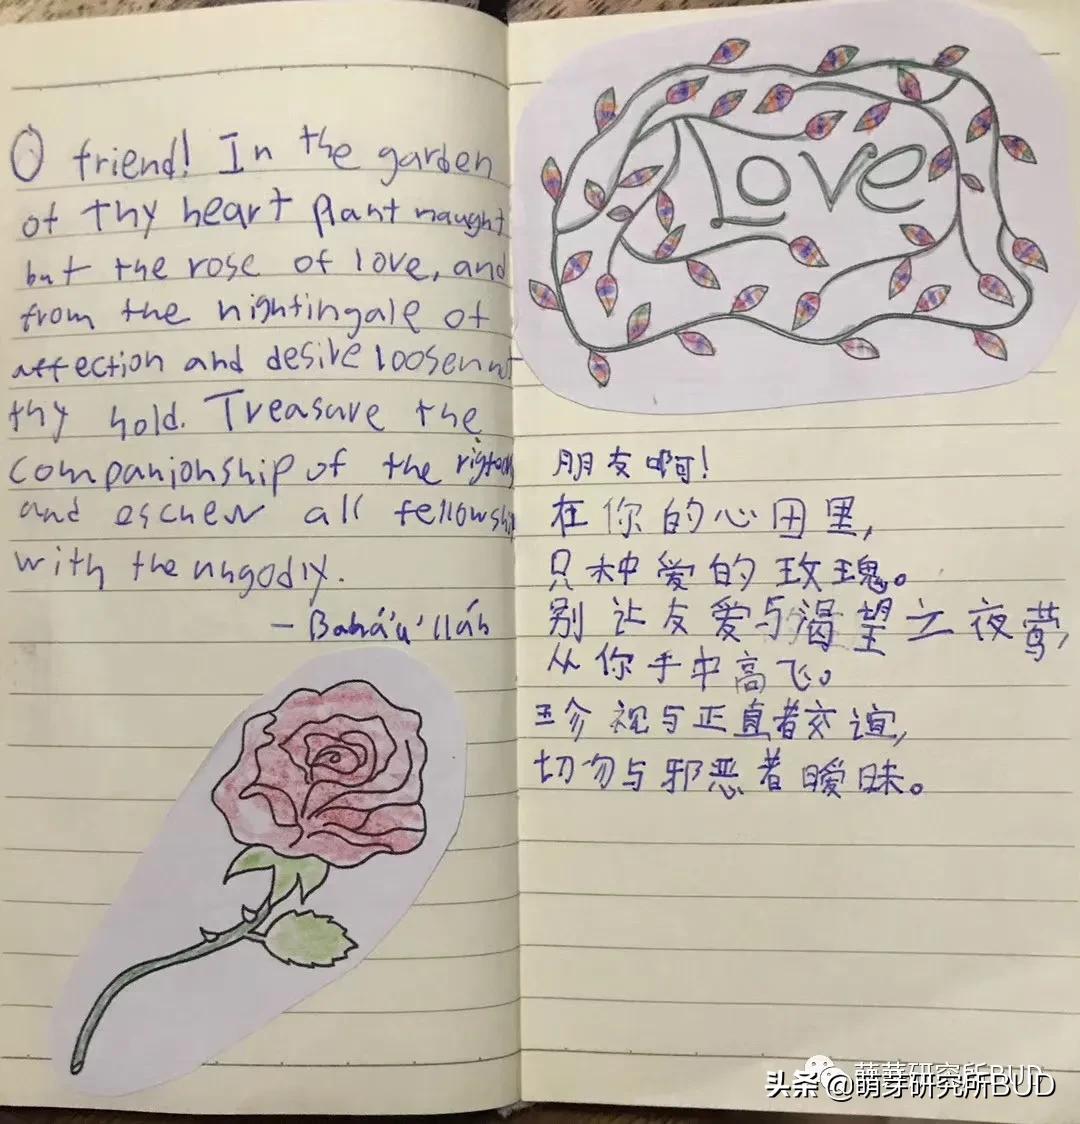 O friend! In the garden
of thy heart plant naught
but the rose of love, and
from the nightingale of
affection and desire loosen not
thy hold. Treasure the
companionship of the
and eschew all fellowship
with the ungodly.
- Bahá'u'lláh
Love
朋友啊!
在你的心田里,
只种爱的玫瑰。
别让友爱与渴望之夜莺,
从你手中高飞。
珍视与正直者交谊,
切勿与邪恶者暧昧。
萌芽研究所BUD
头条 @萌芽研究所BUD